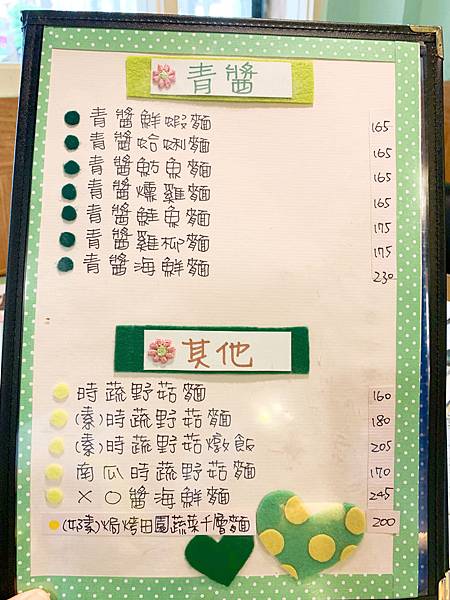 青醬
青醬鮮蝦麵 165
青醬蛤蜊麵 165
青醬魷魚麵 165
青醬燻雞麵 165
青醬鮭魚麵 175
青醬雞柳麵 175
青醬海鮮麵 230
其他
時蔬野菇麵 160
(素)時蔬野菇麵 180
(素)時蔬野菇燉飯 205
南瓜時蔬野菇麵 170
XO醬海鮮麵 245
(奶素)焗烤田園蔬菜千層麵 200